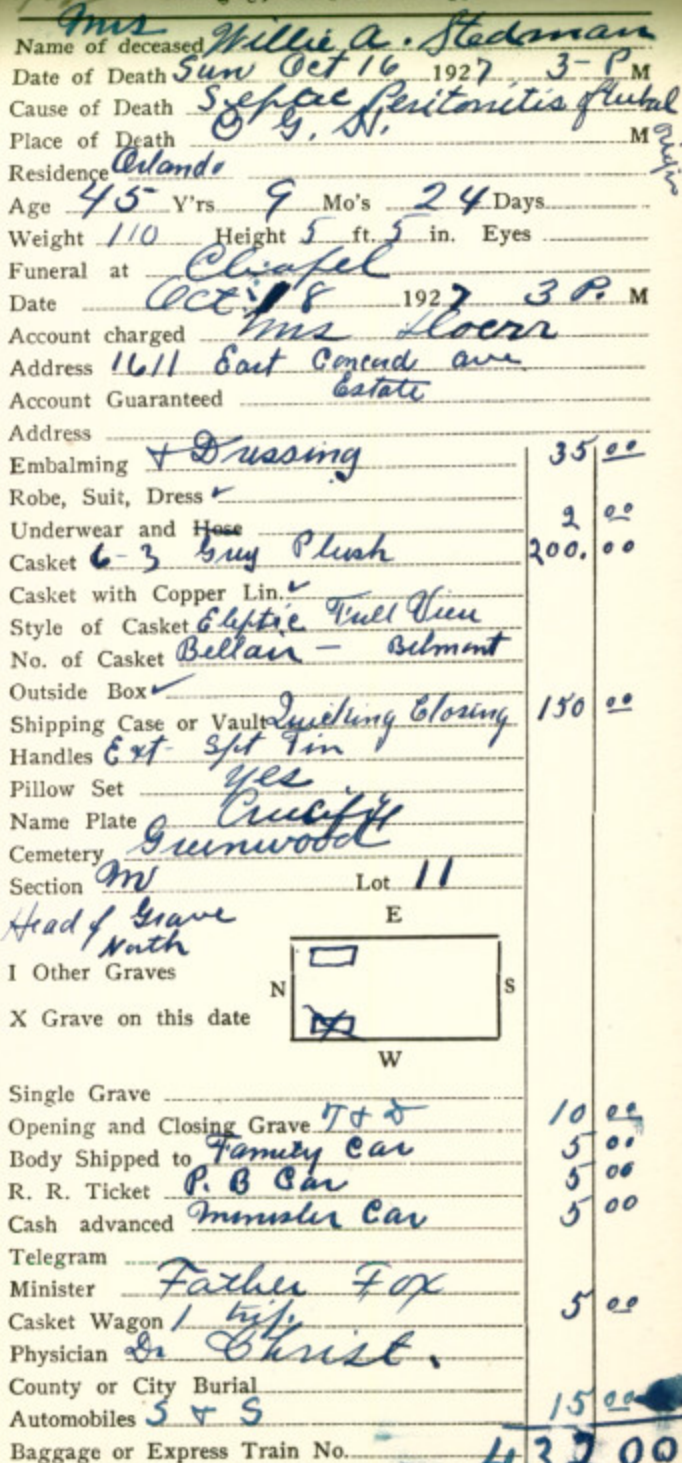 Mrs
Name of deceased Willie A. Stedman
Date of Death Sun Oct 16 1927 3- P M
Cause of Death Septic Peritonitis of tubal origin
Place of Death O. G. H. M
Residence Orlando
Age 45 Y'rs 9 Mo's 24 Days
Weight 110 Height 5 ft. 5 in. Eyes
Funeral at Chapel
Date Oct 18 1927 3 P. M
Account charged Mrs Hoerr
Address 1611 East Concord ave
Account Guaranteed Estate
Address
Embalming + Dressing 35 00
Robe, Suit, Dress ✓
Underwear and Hose 2 00
Casket 6-3 Grey Plush 200. 00
Casket with Copper Lin. ✓
Style of Casket Eliptic Full View
No. of Casket Bellair - Belmont
Outside Box ✓
Shipping Case or Vault Closing 150 00
Handles Ext Tin
Pillow Set yes
Name Plate Crucifix
Cemetery Greenwood
Section M Lot 11
Head of Grave
North
E
I Other Graves
N S
X Grave on this date
W
Single Grave
Opening and Closing Grave T & D 10 00
Body Shipped to Family Car 5 00
R. R. Ticket P. B Car 5 00
Cash advanced Minister Car 5 00
Telegram
Minister Father Fox
Casket Wagon 1 trip. 5 00
Physician Dr Christ.
County or City Burial
Automobiles S & S 15 00
Baggage or Express Train No. 432 00